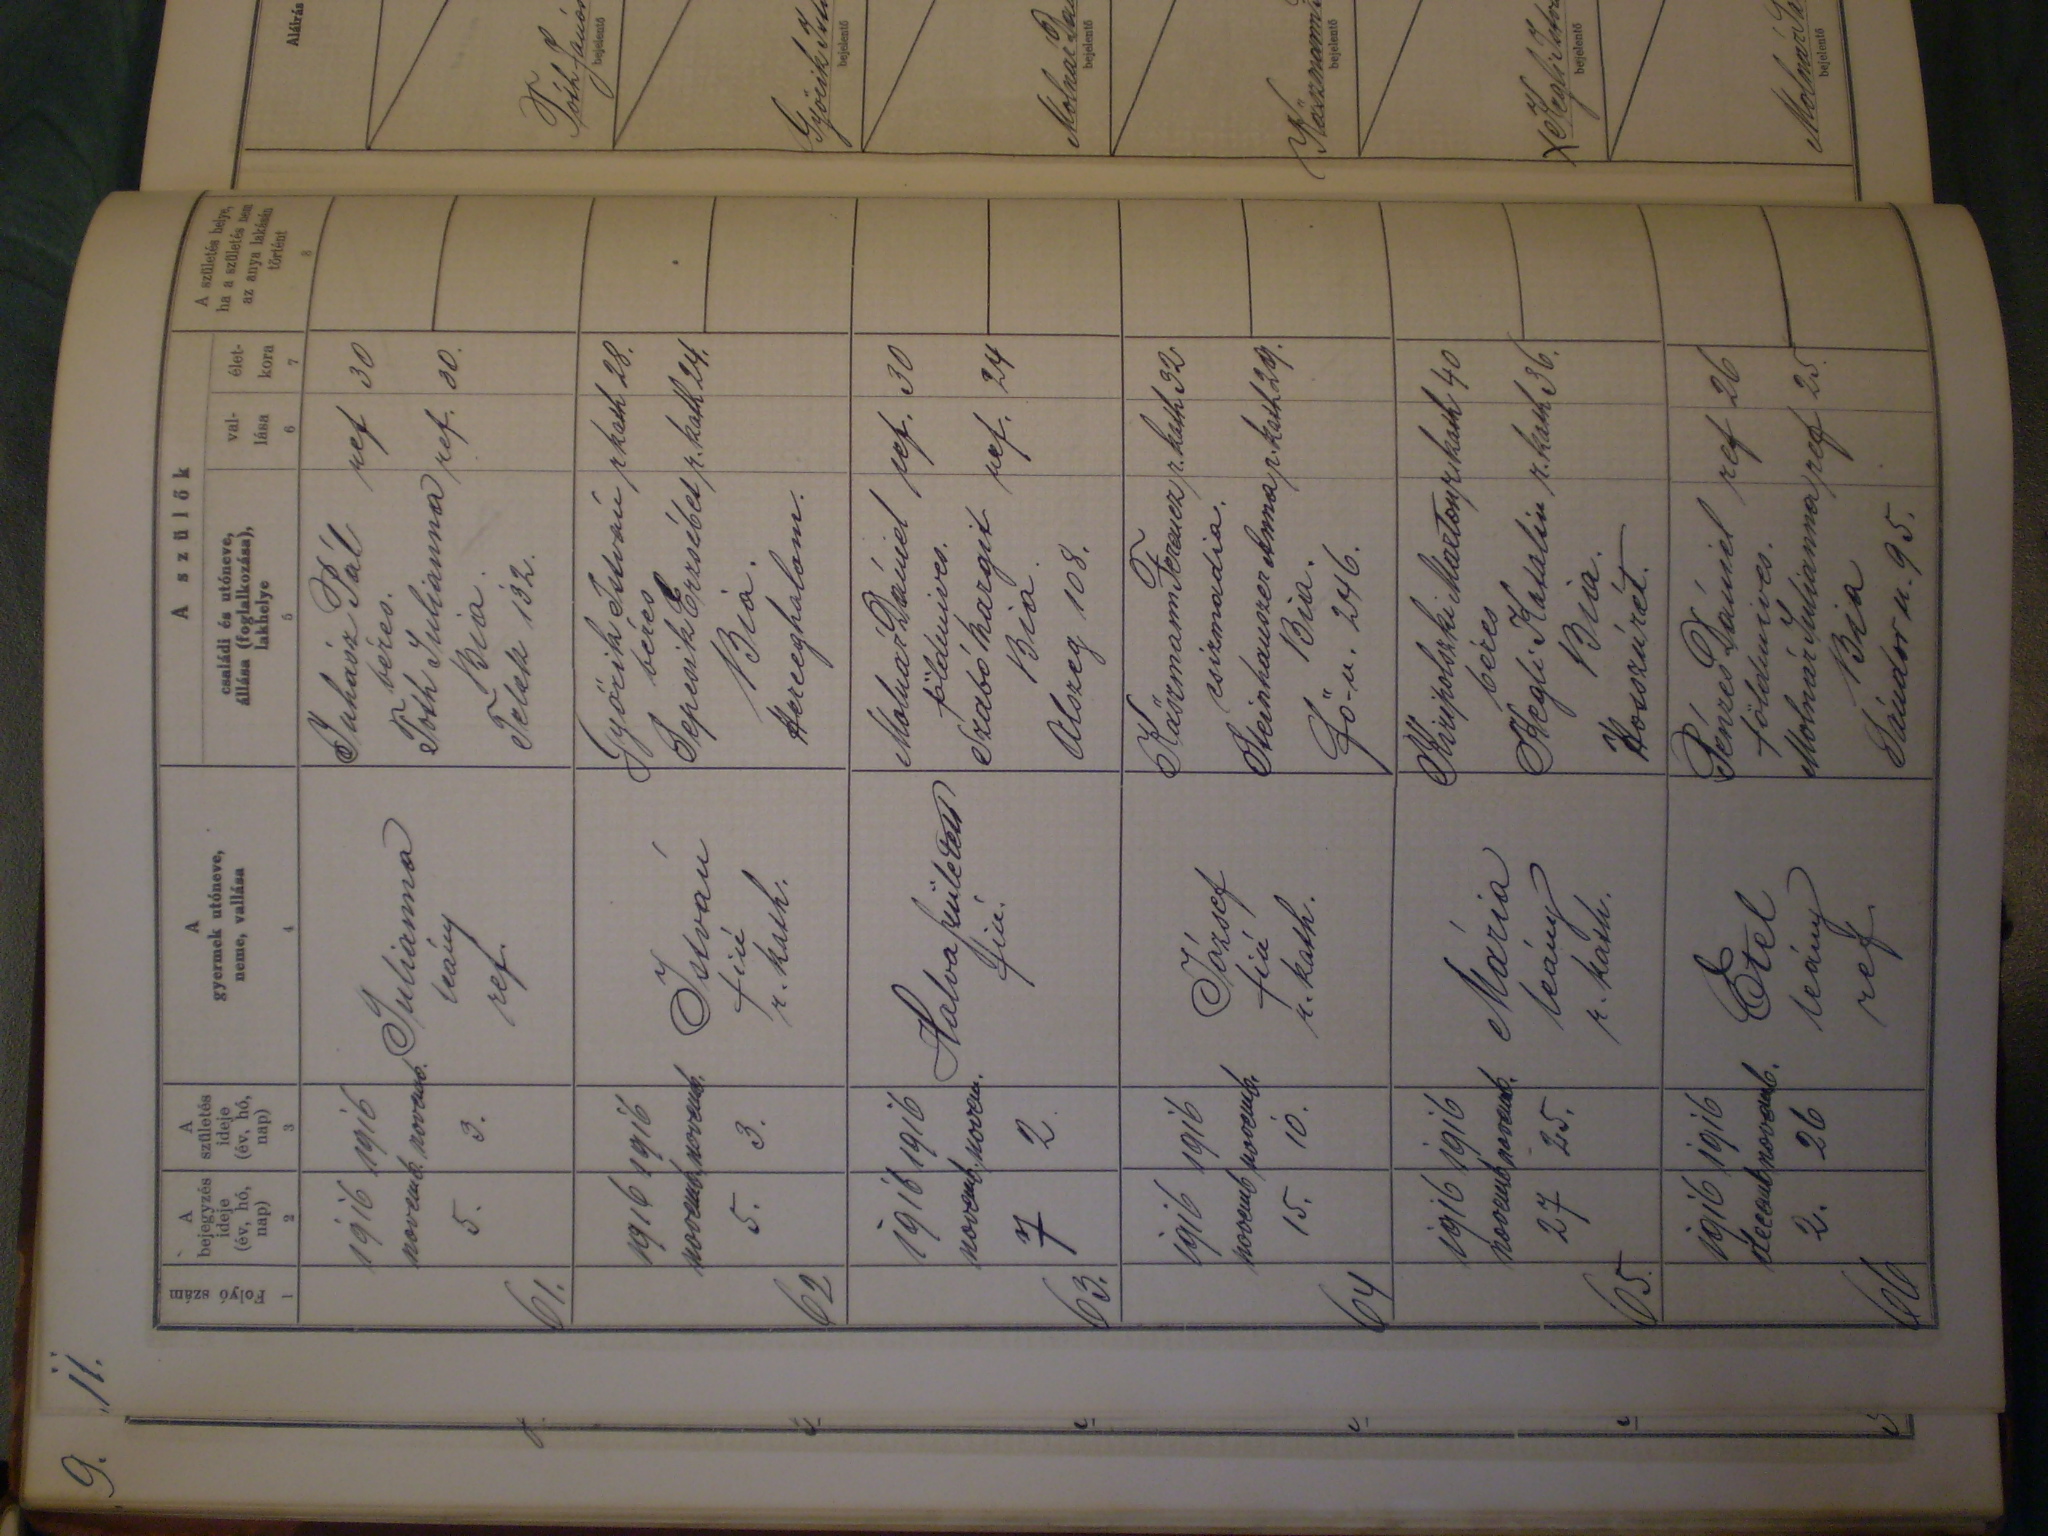 9.
11.
Folyó szám
A
bejegyzés
ideje
(év, hó,
nap)
A
születés
ideje
(év, hó,
nap)
A
gyermek utóneve,
neme, vallása
A szülők
családi és utóneve,
állása (foglalkozása),
lakhelye
val-
lása
élet-
kora
A születés helye,
ha a születés nem
az anya lakásán
történt
1
2
3
4
5
6
7
8
61.
1916
novemb.
5.
1916
novemb.
3.
Julianna
leány
ref.
Juhász Pál ref 30
béres.
Tóth Julianna ref. 30.
Bia.
Telek 132.
62
1916
novemb.
5.
1916
novemb.
3.
István
fiú
r. kath.
Győrik István r. kath 28.
béres
Sepesik Erzsébet r. kath 24.
Bia.
Herceghalom.
63.
1916
novemb.
7
1916
novem.
2
Halva született
fiú.
Molnár Dániel ref. 30
földmives.
Szabó Margit ref. 24
Bia.
Alszeg 108.
64
1916
novemb.
15.
1916
novemb.
10.
József
fiú
r. kath.
Kászmann Ferencz r. kath 32
csizmadia.
Steinhauszer Anna r. kath 29.
Bia.
Fő-u. 246.
65.
1916
novemb.
27
1916
novemb.
25.
Mária
leány
r. kath.
Márton r. kath 40
béres
Hegli Katalin r. kath 36.
Bia.
Hosszúrét.
66
1916
decemb.
2.
1916
novemb.
26
Etel
leány
ref.
Pénzes Dániel ref 26
földmives.
Molnár Julianna ref 25.
Bia
Sándor u. 95.
Aláírás
Tóth János
bejelentő
Győrik
bejelentő
Molnár
bejelentő
Kászmann
bejelentő
bejelentő
Molnár
bejelentő